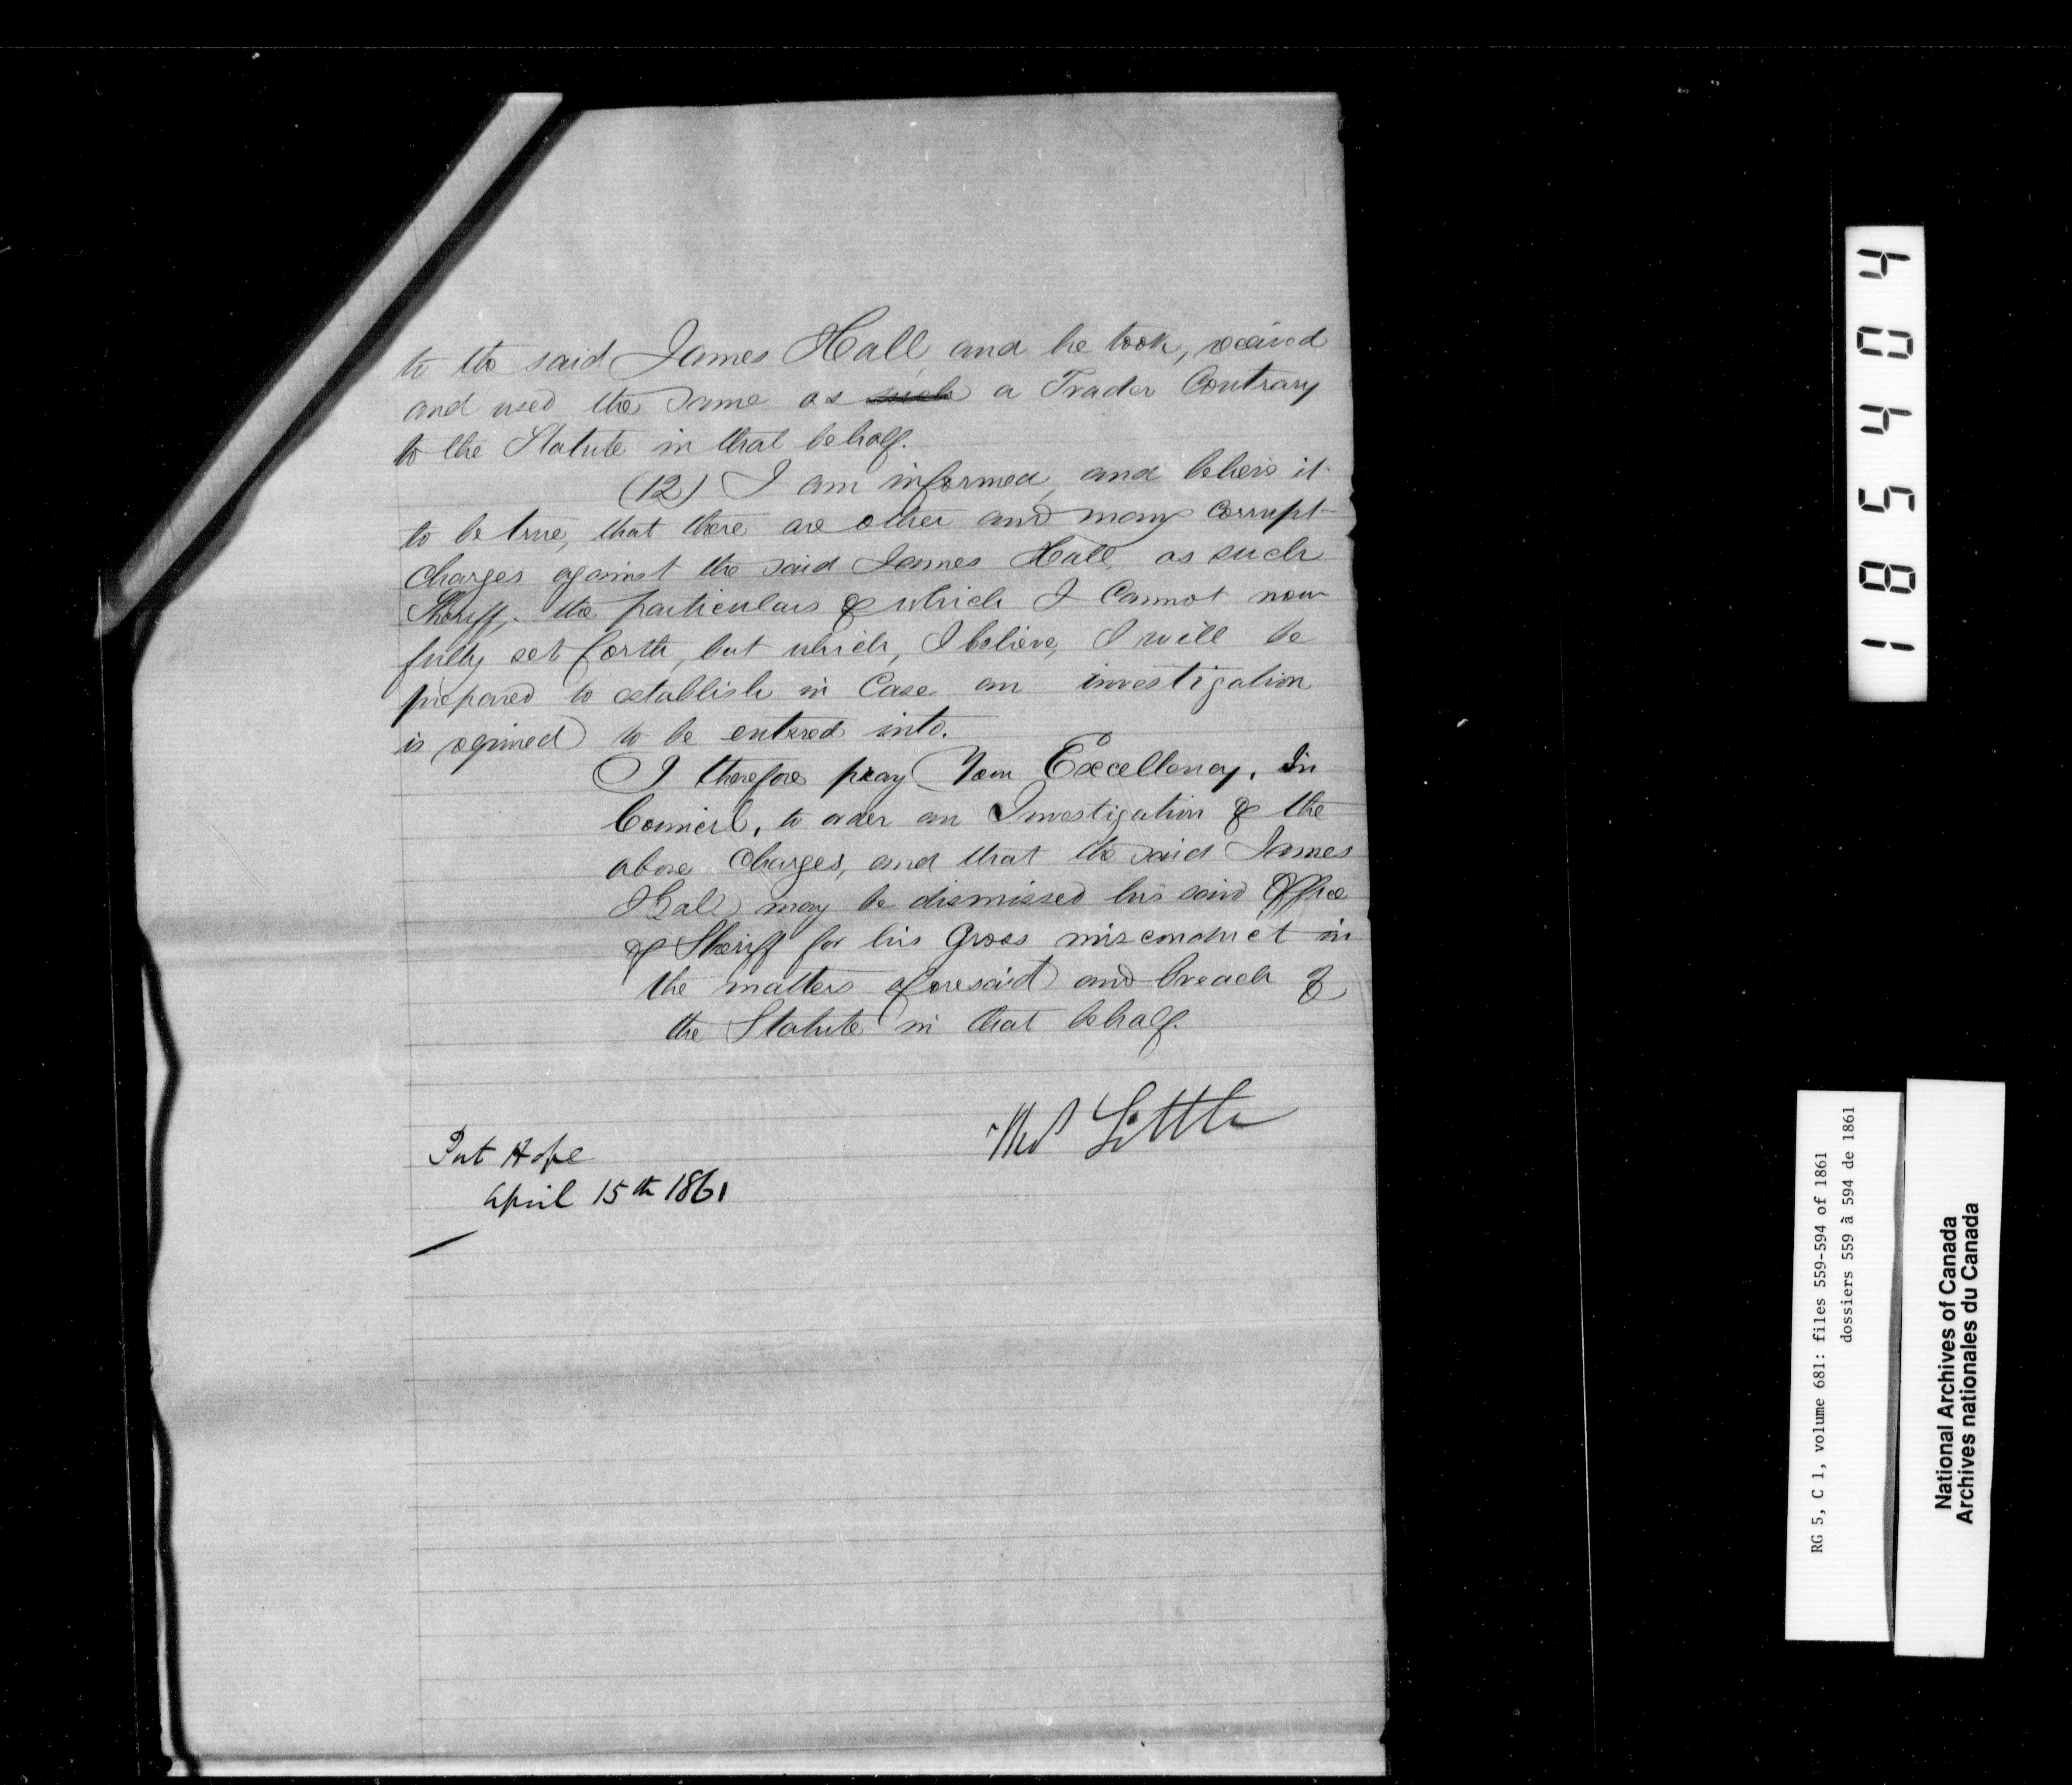 to the said James Hall and he took, received
and used the same as such a Trader Contrary
to the Statute in that behalf.
(12) I am informed, and believe it
to be true, that there are other and many corrupt
charges against the said James Hall, as such
Sheriff, the particulars of which I cannot now
fully set forth, but which, I believe, I will be
prepared to establish in Case an investigation
is required to be entered into.
I therefore pray Your Excellency, In
Council, to order an Investigation of the
above Charges, and that the said James
Hall may be dismissed his said Office
of Sheriff for his Gross misconduct in
the matters aforesaid and breach of
the Statute in that behalf.
Thos Little
Port Hope
April 15th 1861
1 8 5 4 0 4
RG 5, C 1, volume 681: files 559-594 of 1861
dossiers 559 à 594 de 1861
National Archives of Canada
Archives nationales du Canada